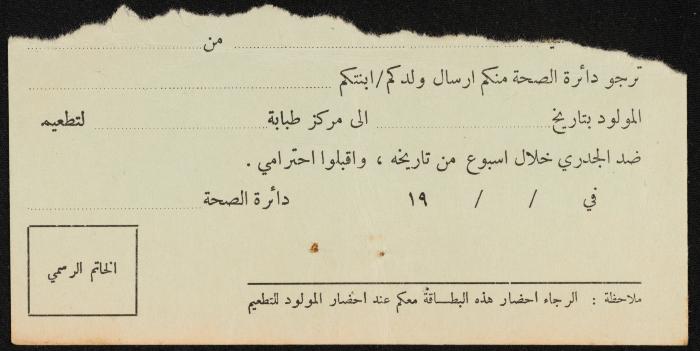 من
ترجو دائرة الصحة منكم ارسال ولدكم/ابنتكم
المولود بتاريخ الى مركز طبابة لتطعيمه
ضد الجدري خلال اسبوع من تاريخه ، واقبلوا احترامي .
في / / ١٩ دائرة الصحة
الخاتم الرسمي
ملاحظة : الرجاء احضار هذه البطاقة معكم عند احضار المولود للتطعيم